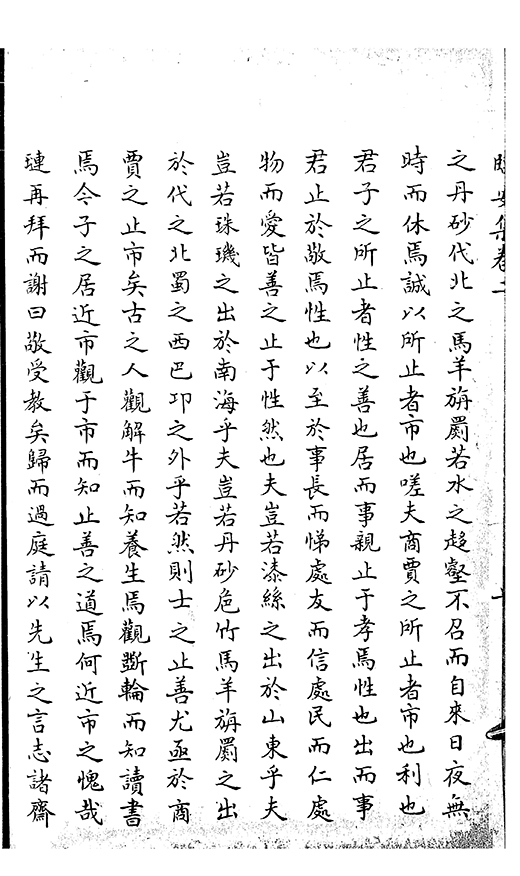 集卷二
之丹砂代北之馬羊旃罽若水之趍壑不召而自來日夜無
時而休焉誠以所止者市也嗟夫商賈之所止者市也利也
君子之所止者性之善也居而事親止于孝焉性也出而事
君止於敬焉性也以至於事長而悌處友而信處民而仁處
物而愛皆善之止于性然也夫豈若漆絲之出於山東乎夫
豈若珠璣之出於南海乎夫豈若丹砂卮竹馬羊旃罽之出
於代之北蜀之西巴卭之外乎若然則士之止善尤亟於商
賈之止市矣古之人觀解牛而知養生焉觀斲輪而知讀書
焉今子之居近市觀于市而知止善之道焉何近市之愧哉
璉再拜而謝曰敬受教矣歸而過庭請以先生之言志諸齋